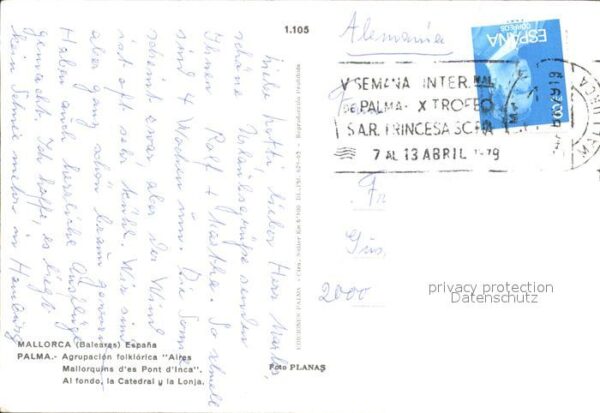 1.105
Alemania
ESPAÑA
CORREOS
V SEMANA INTER.NAL
DE PALMA- X TROFEO
S.A.R. PRINCESA SOFIA
7 AL 13 ABRIL 1979
MALLORCA
Liebe Lotti, lieber Herr
schöne Urlaubsgrüße senden
Ihnen Rolf + So schnell
sind 4 Wochen um. Die Sonne
scheint zwar aber der Wind
ist oft sehr kühl. Wir sind
aber ganz schön braun geworden
Haben auch herrliche Ausflüge
gemacht. Ich hoffe, es liegt
kein Schnee mehr in Hamburg
EDICIONES PALMA
Reproducción Prohibida
Fr
2000
privacy protection
Datenschutz
MALLORCA (Baleares) España
PALMA.- Agrupación folklórica "Aires
Mallorquins d'es Pont d'Inca".
Al fondo, la Catedral y la Lonja.
Foto PLANAS